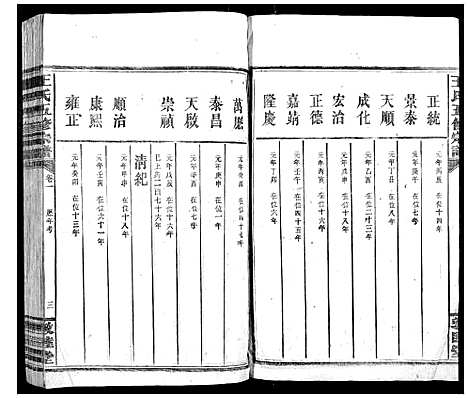 王氏五修宗譜
正統 元年丙辰 在位十四年
景泰 元年庚午 在位七年
天順 元年丁丑 在位八年
成化 元年乙酉 在位二十三年
宏治 元年戊申 在位十八年
正德 元年丙寅 在位十六年
嘉靖 元年壬午 在位四十五年
隆慶 元年丁卯 在位六年
敦睦堂
萬曆 元年癸酉 在位四十七年
泰昌 元年庚申 在位一年
天啟 元年辛酉 在位七年
崇禎 元年戊辰 在位十六年
已上共二百七十六年
清紀
順治 元年甲申 在位十八年
康熙 元年壬寅 在位六十一年
雍正 元年癸卯 在位十三年
王氏五修宗譜
卷一
歷年考
三
敦睦堂